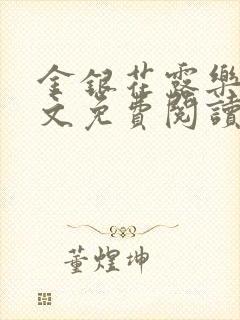 金銀花露樂
文免費閱讀
董煌坤